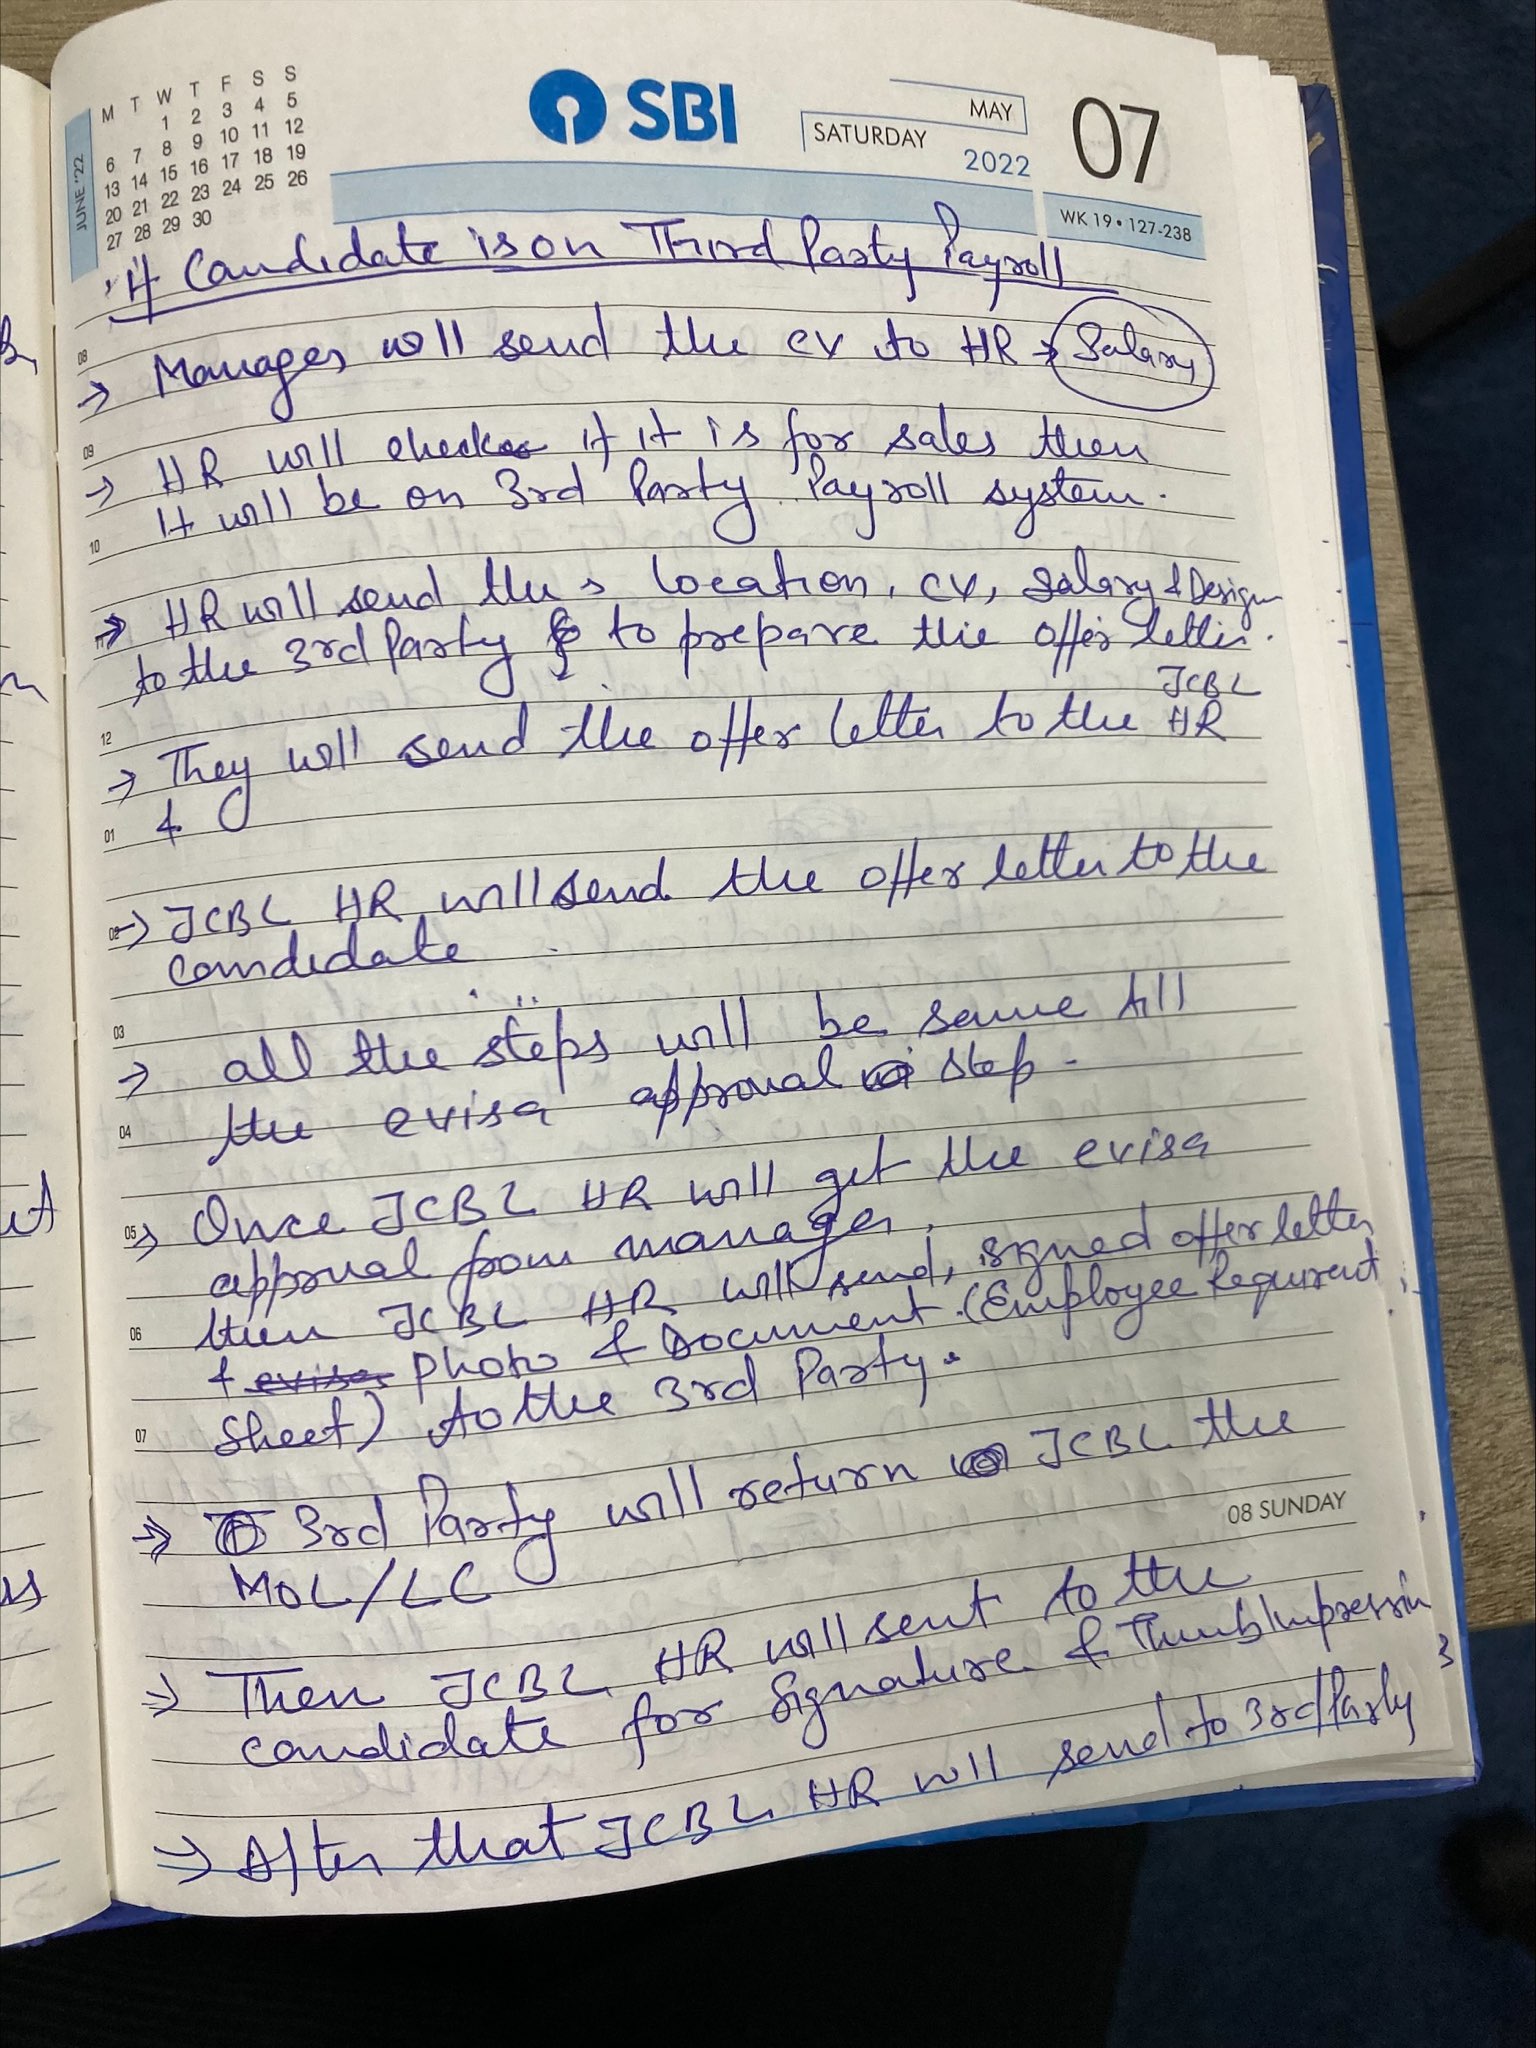 JUNE '22
M T W T F S S
1 2 3 4 5
6 7 8 9 10 11 12
13 14 15 16 17 18 19
20 21 22 23 24 25 26
27 28 29 30
SBI
MAY
SATURDAY
2022
07
WK 19 • 127-238
If Candidate is on Third Party Payroll
08
→ Manager will send the CV to HR → Salary
09
→ HR will check if it is for sales then
It will be on 3rd Party Payroll system.
10
→ HR will send the location, CV, Salary & Design
11
to the 3rd Party to prepare the offer letter.
JCBL
12
→ They will send the offer letter to the HR
01
&
02
→ JCBL HR will send the offer letter to the
candidate
03
→ all the steps will be same till
04
the evisa approval step.
05
→ Once JCBL HR will get the evisa
approval from manager.
06
then JCBL HR will send, signed offer letter
& evisa photo & Document (Employee Requirent
07
Sheet) to the 3rd Party.
→ 3rd Party will return JCBL the
08 SUNDAY
MOL/LC
→ Then JCBL HR will sent to the
candidate for Signature & Thumb Impression
→ After that JCBL HR will send to 3rd Party